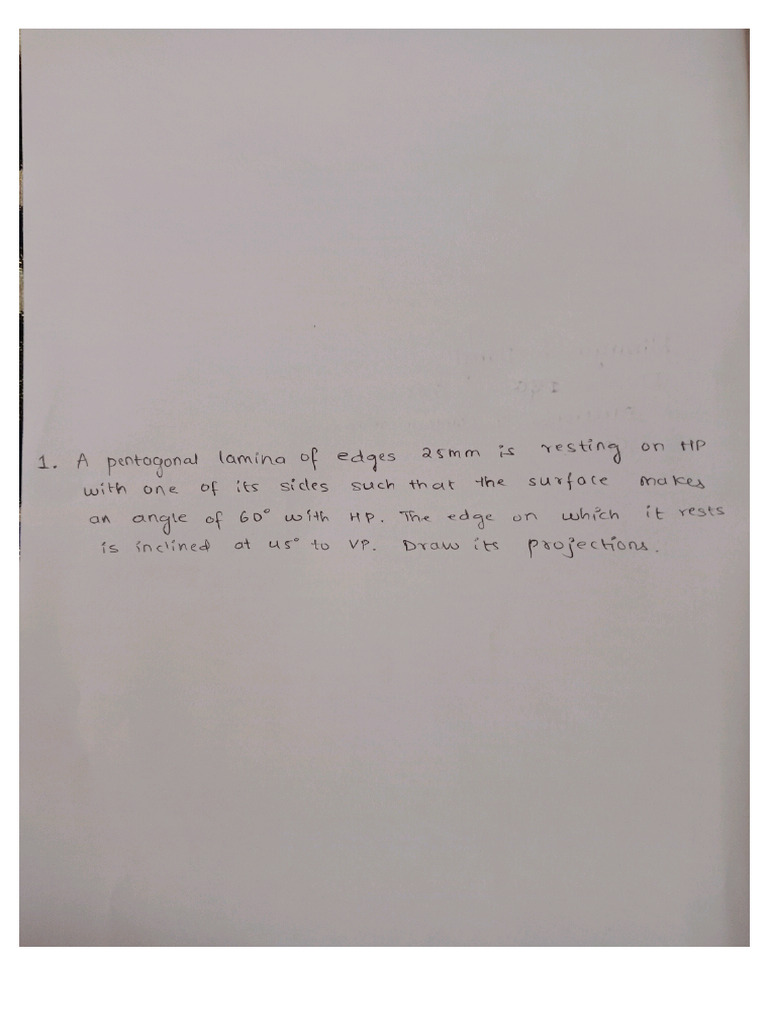 1. A pentagonal lamina of edges 25mm is resting on HP
with one of its sides such that the surface makes
an angle of 60° with HP. The edge on which it rests
is inclined at 45° to VP. Draw its projections.